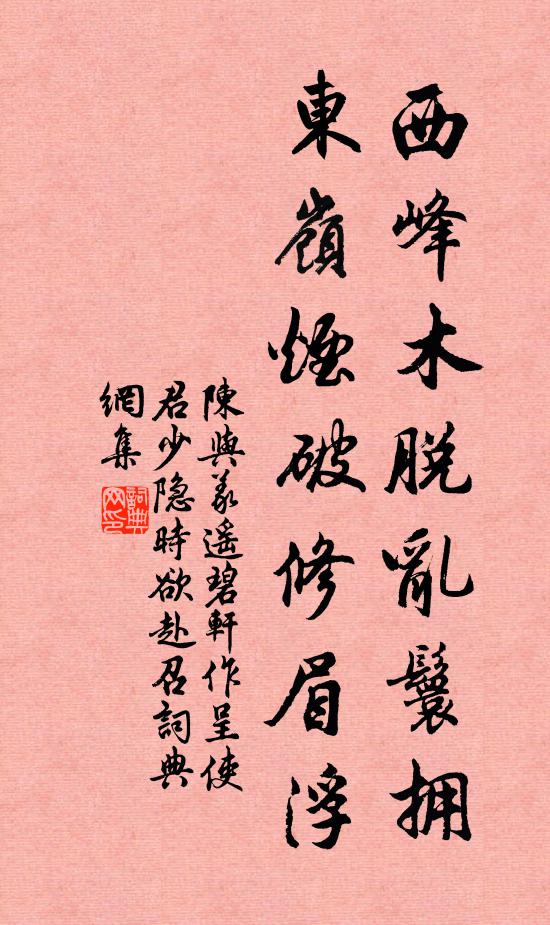 西峰木脱亂鬟擁
東嶺煙破修眉浮
陳與義遥碧軒作呈使
君少隐時欲赴召詞典
網集
詞典网印